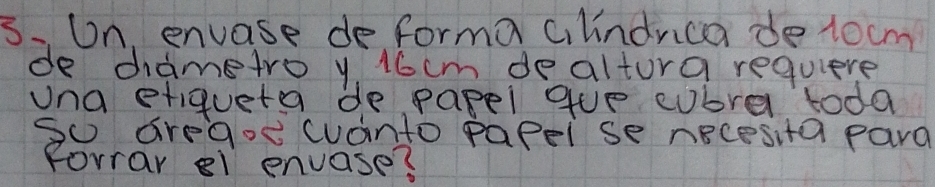 3- Un envase de forma cilíndrica de 10cm
de diámetro y 16cm de altura requiere
una etiqueta de papel que cubra toda
su area.¿ cuánto papel se necesita para
Forrar el envase?